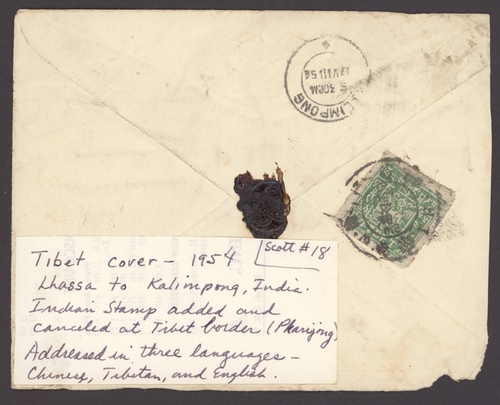 KALIMPONG
5.30PM
7 VIII 54
Scott #18
Tibet cover - 1954
Lhassa to Kalimpong, India.
Indian Stamp added and
canceled at Tibet border (Pharijong)
Addressed in three languages -
Chinese, Tibetan, and English.